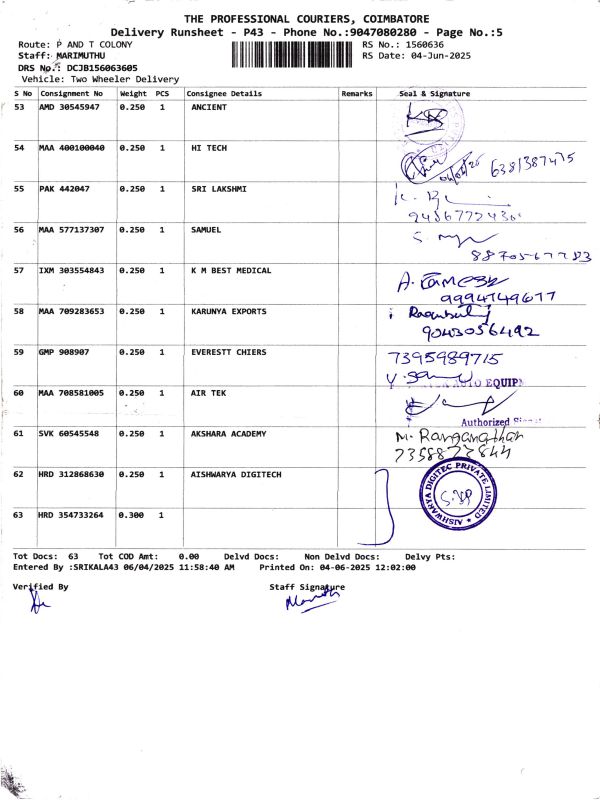 THE PROFESSIONAL COURIERS, COIMBATORE
Delivery Runsheet - P43 - Phone No.:9047080280 - Page No.:5
Route: P AND T COLONY RS No.: 1560636
Staff: MARIMUTHU RS Date: 04-Jun-2025
DRS No.: DCJB156063605
Vehicle: Two Wheeler Delivery
S No Consignment No Weight PCS Consignee Details Remarks Seal & Signature
53 AMD 30545947 0.250 1 ANCIENT
54 MAA 400100040 0.250 1 HI TECH 6381387475
55 PAK 442047 0.250 1 SRI LAKSHMI
56 MAA 577137307 0.250 1 SAMUEL
57 IXM 303554843 0.250 1 K M BEST MEDICAL
9994749677
58 MAA 709283653 0.250 1 KARUNYA EXPORTS
9043056492
59 GMP 908907 0.250 1 EVERESTT CHIERS 7395989715
AUTO EQUIPM
60 MAA 708581005 0.250 1 AIR TEK
Authorized
61 SVK 60545548 0.250 1 AKSHARA ACADEMY M. Ranganathan
62 HRD 312868630 0.250 1 AISHWARYA DIGITECH
AISHWARYA DIGITEC PRIVATE LIMITED
63 HRD 354733264 0.300 1
Tot Docs: 63 Tot COD Amt: 0.00 Delvd Docs: Non Delvd Docs: Delvy Pts:
Entered By :SRIKALA43 06/04/2025 11:58:40 AM Printed On: 04-06-2025 12:02:00
Verified By Staff Signature